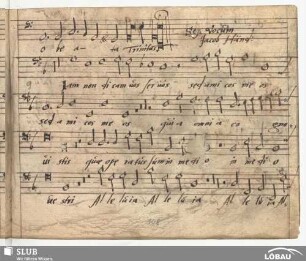 o be a ta Trinitas
Sex Vocum
Jacob Handl
Iam non dicam vos servos sed amicos me os
sed a mi cos me os qui a omni a co gno
vi stis quae ope ratus sum in me di o in me di o
ve stri Al le lu ia Al le lu ia Al le lu ia
SLUB
Wir führen Wissen.
LÖBAU